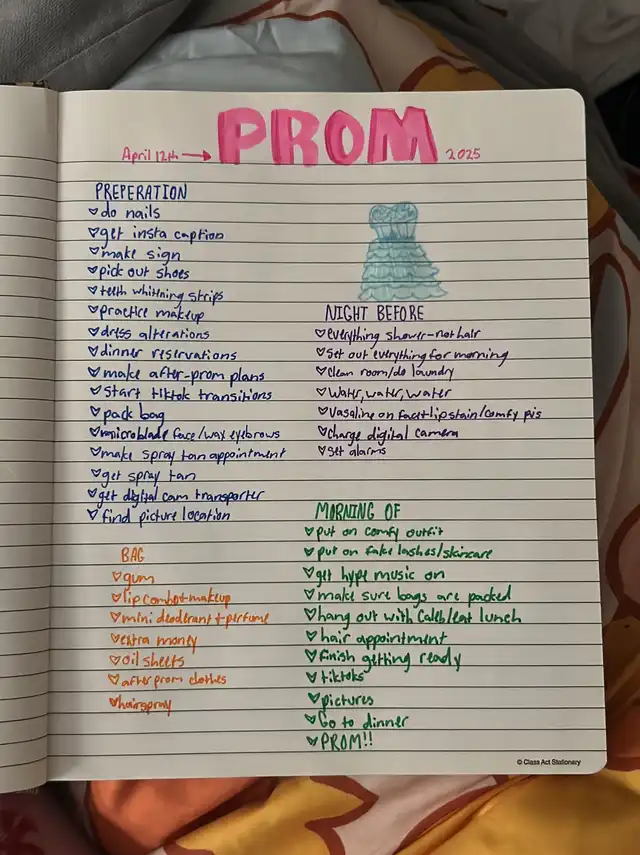 PROM
April 12th → 2025
PREPERATION
do nails
get insta caption
make sign
pick out shoes
teeth whitning strips
practice makeup
dress alterations
dinner reservations
make after-prom plans
start tiktok transitions
pack bag
microblade face/wax eyebrows
make spray tan appointment
get spray tan
get digital cam transporter
find picture location
BAG
gum
lip combo+makeup
mini deoderant + perfume
extra money
oil sheets
after prom clothes
hairspray
NIGHT BEFORE
everything shower-not hair
Set out everything for morning
clean room/do laundry
Water, water, water
Vasaline on face+lip stain/comfy pjs
Charge digital camera
Set alarms
MORNING OF
put on comfy outfit
put on fake lashes/skincare
get hype music on
make sure bags are packed
hang out with Caleb/eat lunch
hair appointment
finish getting ready
tiktoks
pictures
Go to dinner
PROM!!
© Class Act Stationery